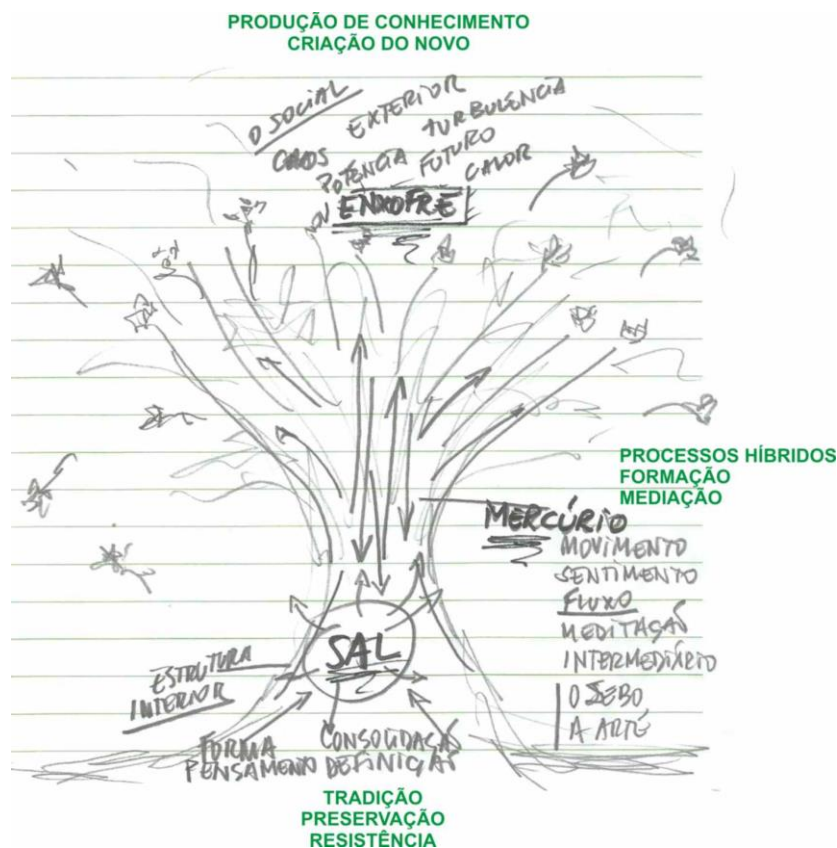 PRODUÇÃO DE CONHECIMENTO
CRIAÇÃO DO NOVO
O SOCIAL
EXTERIOR
TURBULÊNCIA
CAOS
POTÊNCIA
FUTURO
CALOR
ENXOFRE
PROCESSOS HÍBRIDOS
FORMAÇÃO
MEDIAÇÃO
MERCÚRIO
MOVIMENTO
SENTIMENTO
FLUXO
MEDITAÇÃO
INTERMEDIÁRIO
O SEBO
A ARTE
SAL
ESTRUTURA
INTERIOR
FORMA CONSOLIDAÇÃO
PENSAMENTO DEFINIÇÃO
TRADIÇÃO
PRESERVAÇÃO
RESISTÊNCIA